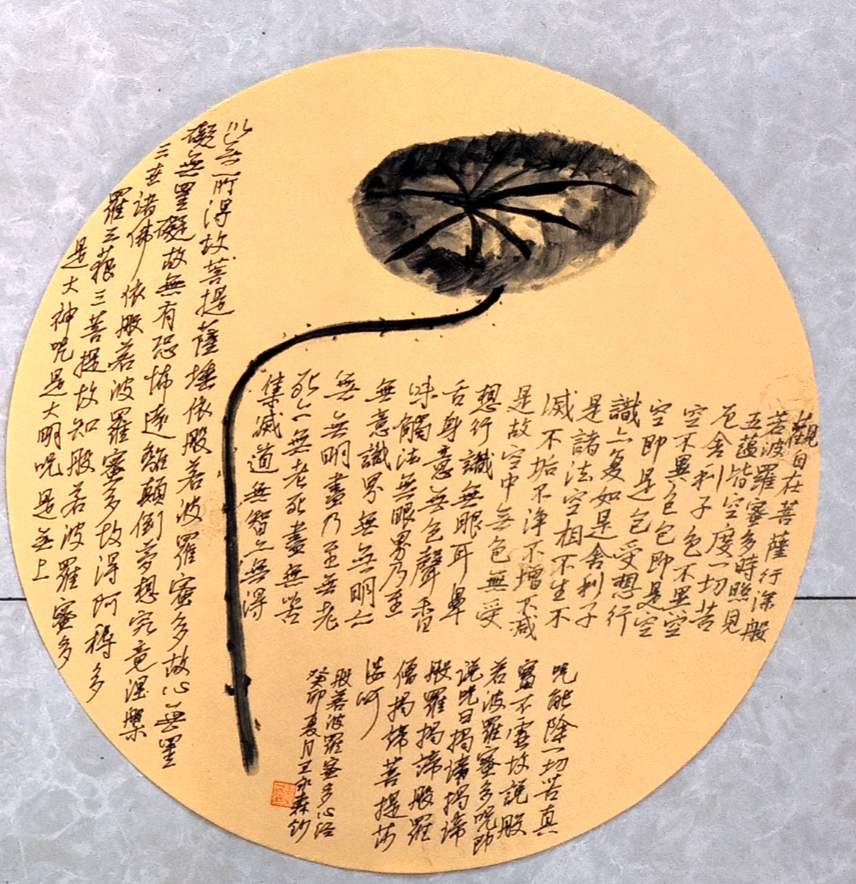 觀自在菩薩行深般
若波羅蜜多時照見
五蘊皆空度一切苦
厄舍利子色不異空
空不異色色即是空
空即是色受想行
識亦復如是舍利子
是諸法空相不生不
滅不垢不淨不增不減
是故空中無色無受
想行識無眼耳鼻
舌身意無色聲香
味觸法無眼界乃至
無意識界無無明亦
無無明盡乃至無老
死亦無老死盡無苦
集滅道無智亦無得
以無所得故菩提薩埵依般若波羅蜜多故心無罣
礙無罣礙故無有恐怖遠離顛倒夢想究竟涅槃
三世諸佛依般若波羅蜜多故得阿耨多
羅三藐三菩提故知般若波羅蜜多
是大神咒是大明咒是無上
咒能除一切苦真
實不虛故說般
若波羅蜜多咒即
說咒曰揭諦揭諦
般羅揭諦般羅
僧揭諦菩提莎
婆呵
般若波羅蜜多心经
癸卯夏月王永森钞